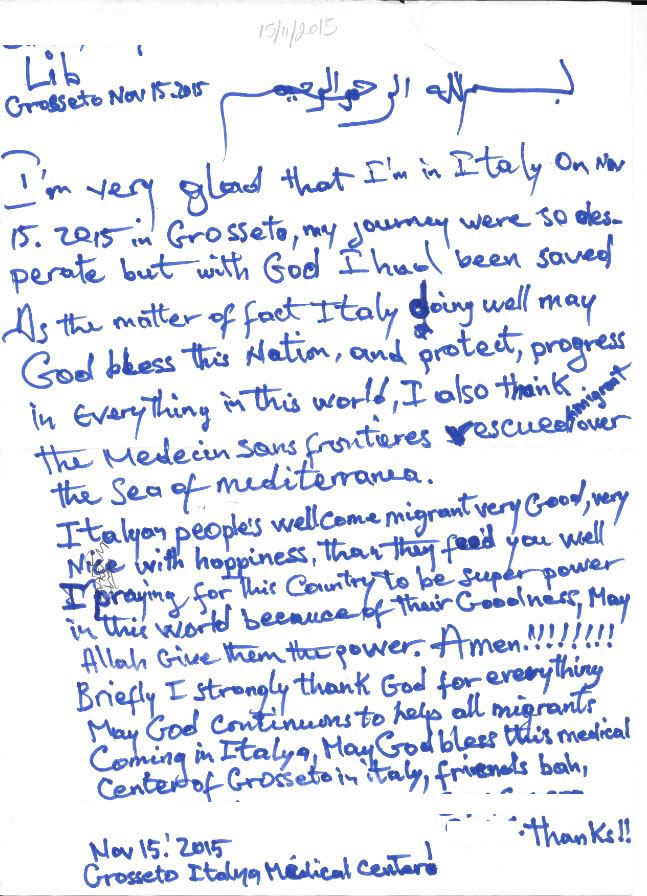 15/11/2015
Lib
Grosseto Nov 15.2015
بسم الله الرحمن الرحيم
I'm very glad that I'm in Italy On Nov
15. 2015 in Grosseto, my journey were so des-
perate but with God I had been saved
As the matter of fact Italy doing well may
God bless this Nation, and protect, progress
in Everything in this world, I also thank
the Medecin sans frontieres rescued migrant over
the Sea of mediterranea.
Italyan people's wellcome migrant very Good, very
Nice with happiness, than they feed you well
I'praying for this Country to be super power
in this world because of their Goodness, May
Allah Give them the power. Amen!!!!!!!!
Briefly I strongly thank God for everything
May God continuons to help all migrants
Coming in Italya, May God bless this medical
Center of Grosseto in italy, friends bah,
Thanks!!
Nov 15! 2015
Grosseto Italya Médical Centaro!